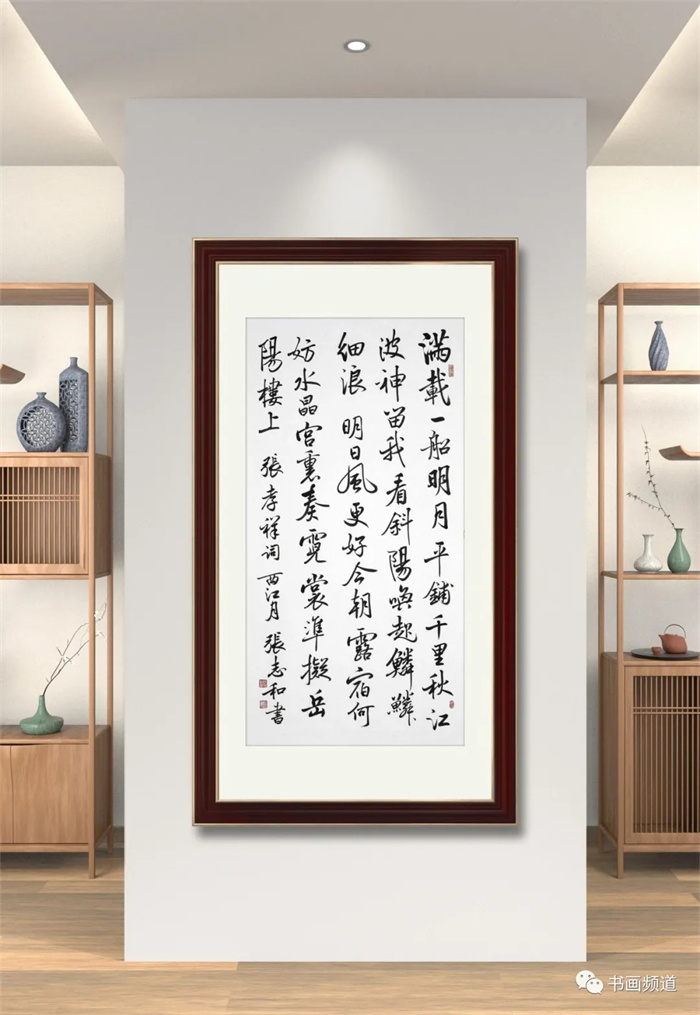 满載一船明月平鋪千里秋江
波神留我看斜陽喚起鱗鱗
细浪 明日風更好今朝露宿何
妨水晶宫裏奏霓裳準擬岳
陽樓上 張孝祥詞 西江月 張志和書
书画频道